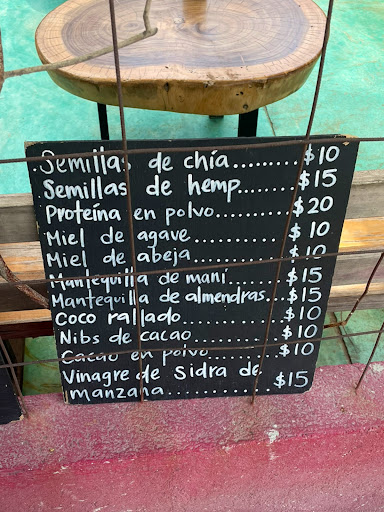 Semillas de chía.......... $10
Semillas de hemp....... $15
Proteína en polvo....... $20
Miel de agave.......... $10
Miel de abeja.......... $10
Mantequilla de maní....... $15
Mantequilla de almendras... $15
Coco rallado........... $10
Nibs de cacao.......... $10
Cacao en polvo......... $10
Vinagre de sidra de
manzana.......... $15